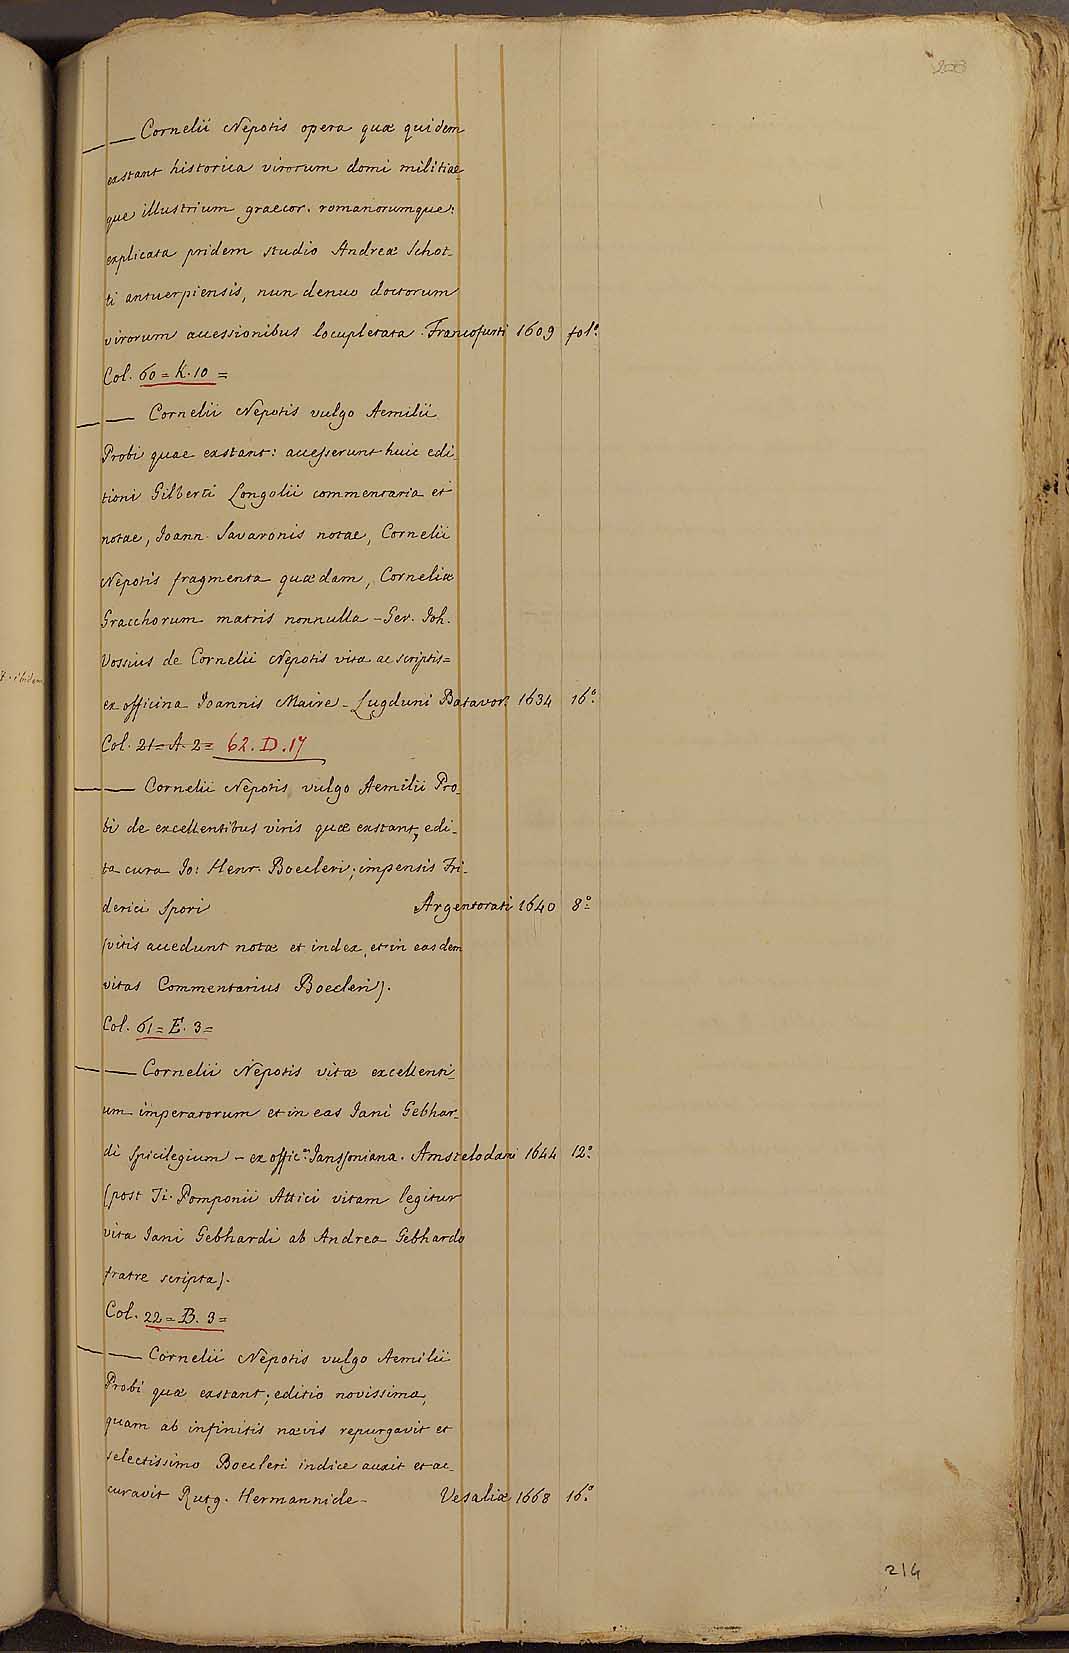 — Cornelii Nepotis opera quæ quidem
exstant historica virorum domi militiae-
que illustrium graecor. romanorumque:
explicata pridem studio Andreæ Schot-
ti antuerpiensis, nun denuo doctorum
virorum accessionibus locupletata. Francofurti 1609 fol.º
Col. 60 = K. 10 =
— Cornelii Nepotis vulgo Aemilii
Probi quae exstant: accesserunt huic edi-
tioni Gilberti Longolii commentaria et
notae, Joann. Savaronis notae, Cornelii
Nepotis fragmenta quædam, Corneliæ
Gracchorum matris nonnulla - Ger. Joh.
Vossius de Cornelii Nepotis vita ac scriptis =
ex officina Joannis Maire - Lugduni Batavor. 1634 16.º
ibidem
Col. 21 = A. 2 = 62. D. 17
— Cornelii Nepotis, vulgo Aemilii Pro-
bi de excellentibus viris quæ exstant, edi-
ta cura Jo: Henr. Boecleri; impensis Fri-
derici Spori Argentorati 1640 8º
(vitis accedunt notæ et index, et in easdem
vitas Commentarius Boecleri).
Col. 61 = E. 3 =
— Cornelii Nepotis vitæ excellenti-
um imperatorum et in eas Jani Gebhar-
di Spicilegium - ex offic.ª Janssoniana. Amstelodami 1644 12.º
(post Ti. Pomponii Attici vitam legitur
vita Jani Gebhardi ab Andrea Gebhardo
fratre scripta).
Col. 22 = B. 3 =
— Cornelii Nepotis vulgo Aemilii
Probi quæ exstant; editio novissima,
quam ab infinitis nævis repurgavit et
selectissimo Boecleri indice auxit et ac-
curavit Rutg. Hermannide - Vesaliæ 1668 16.º
214